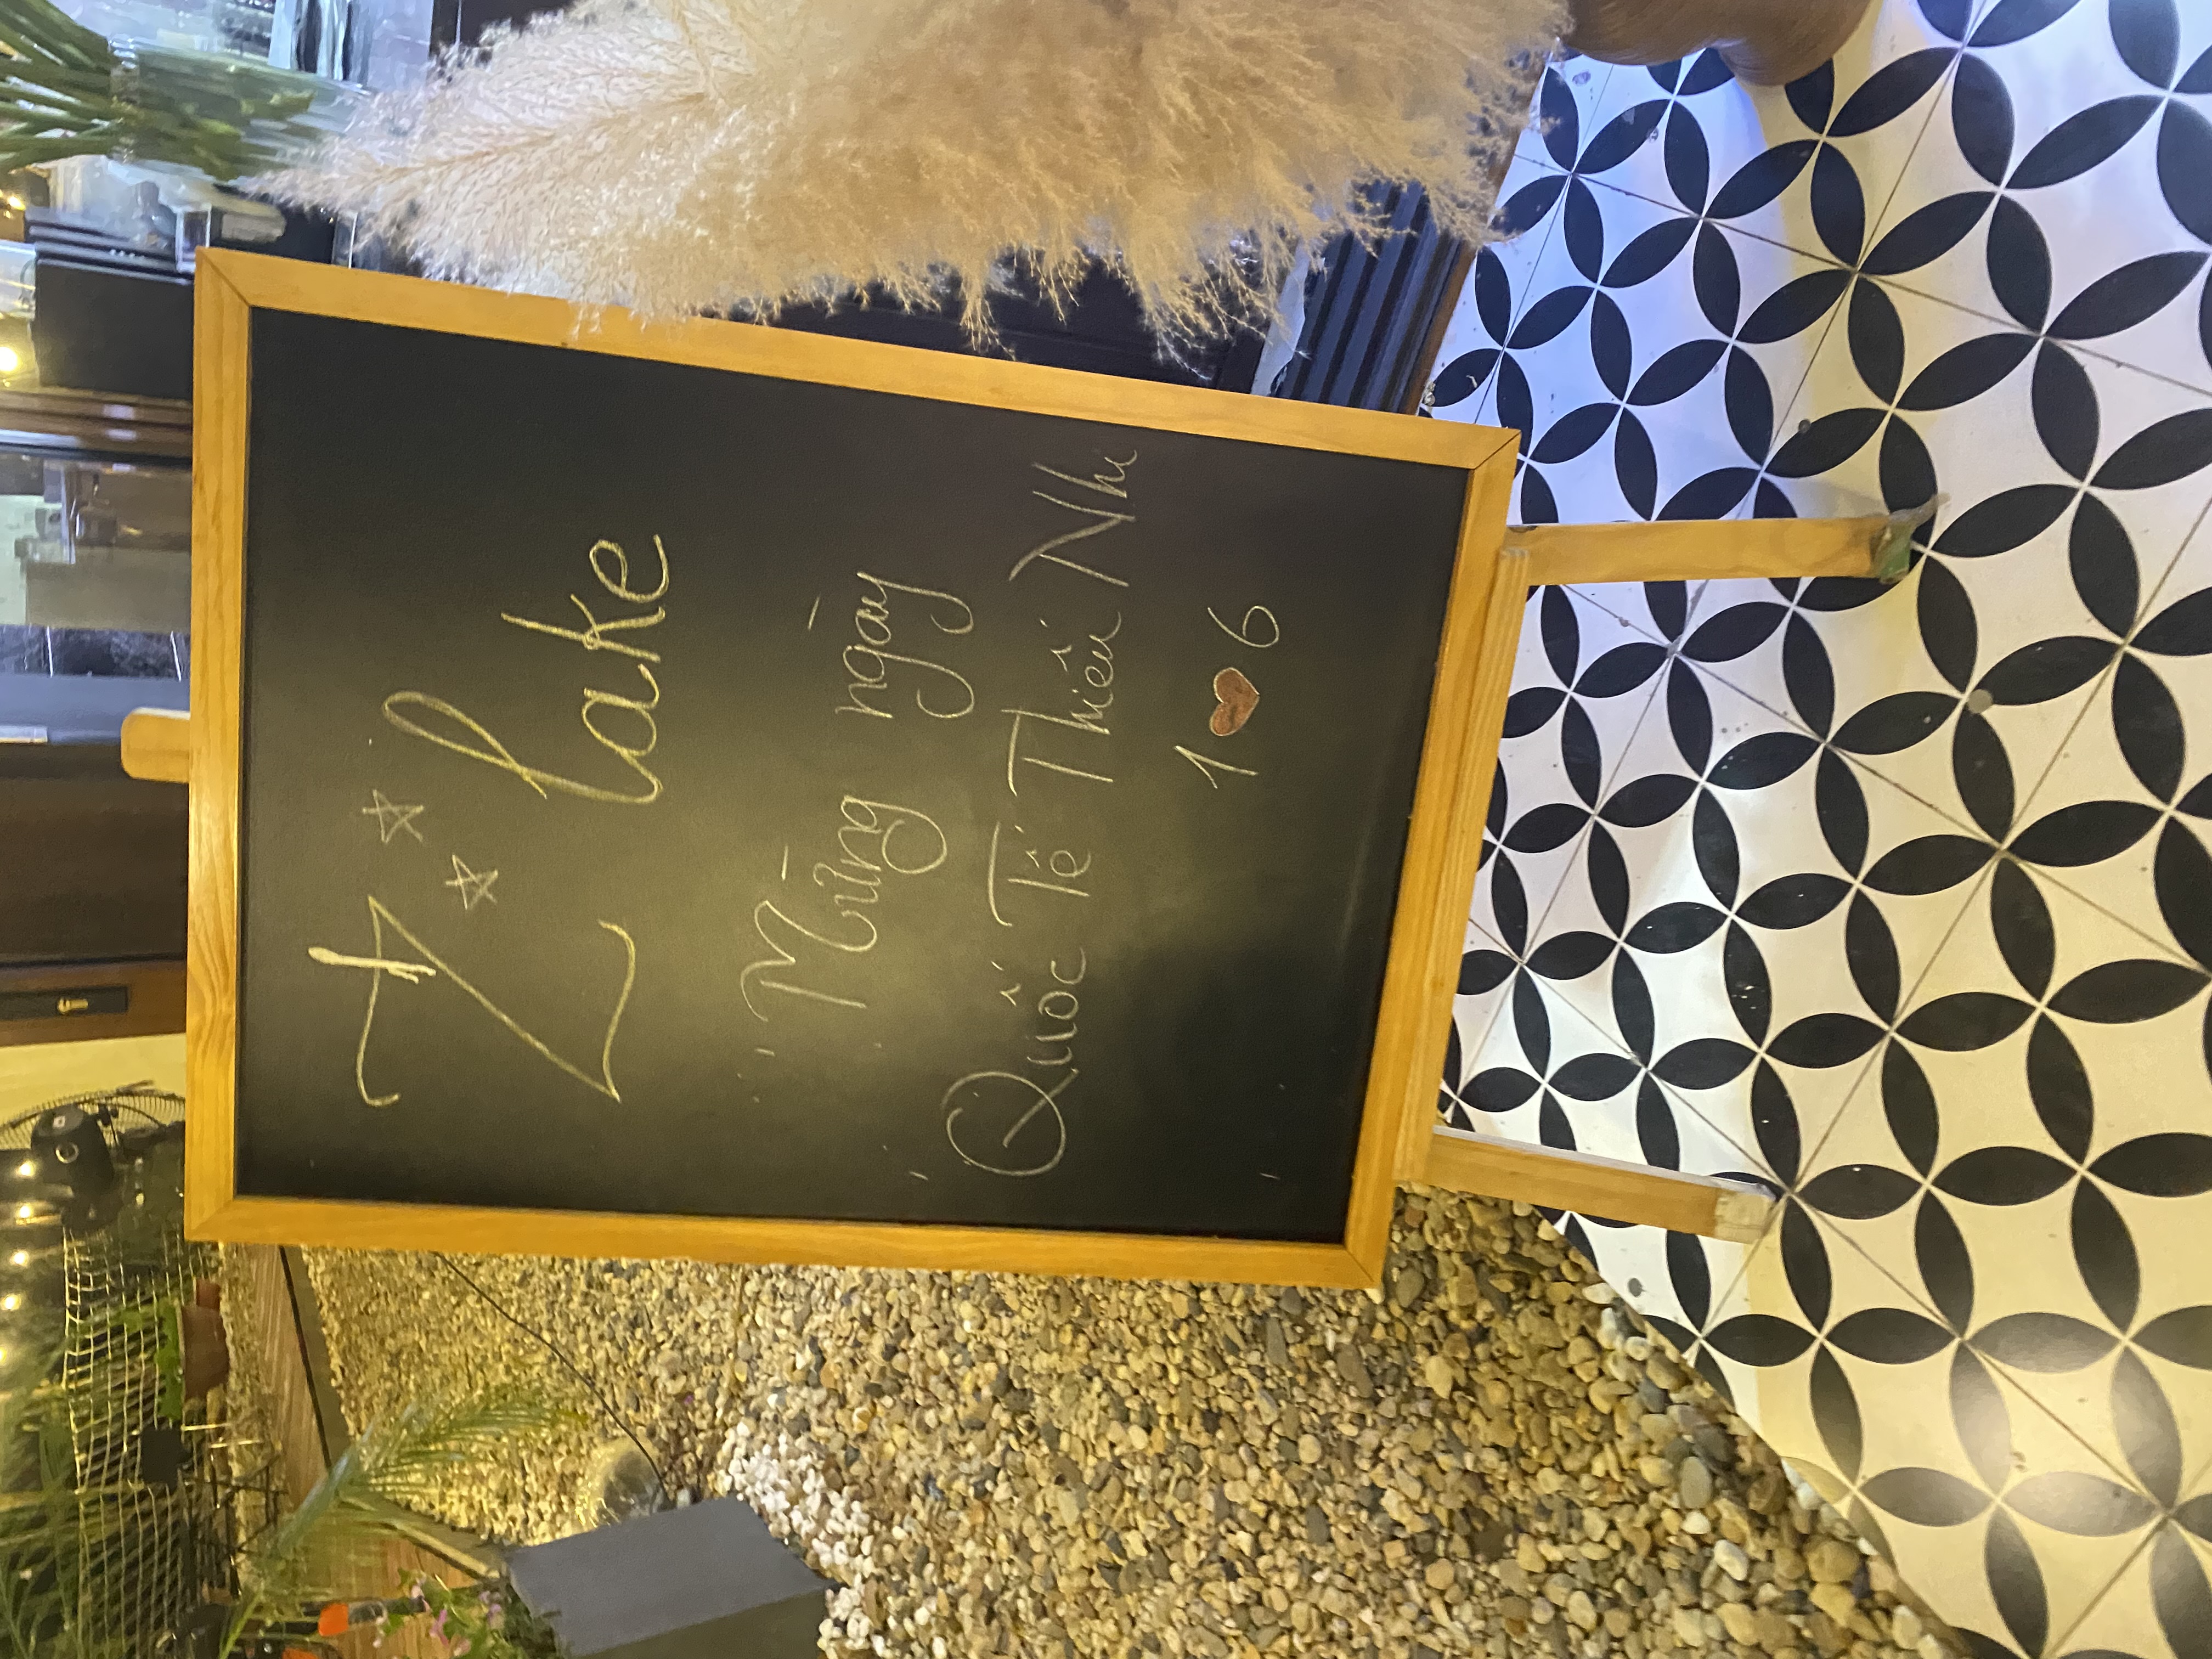 Z lake
Mừng ngày
Quốc Tế Thiếu Nhi
1 6